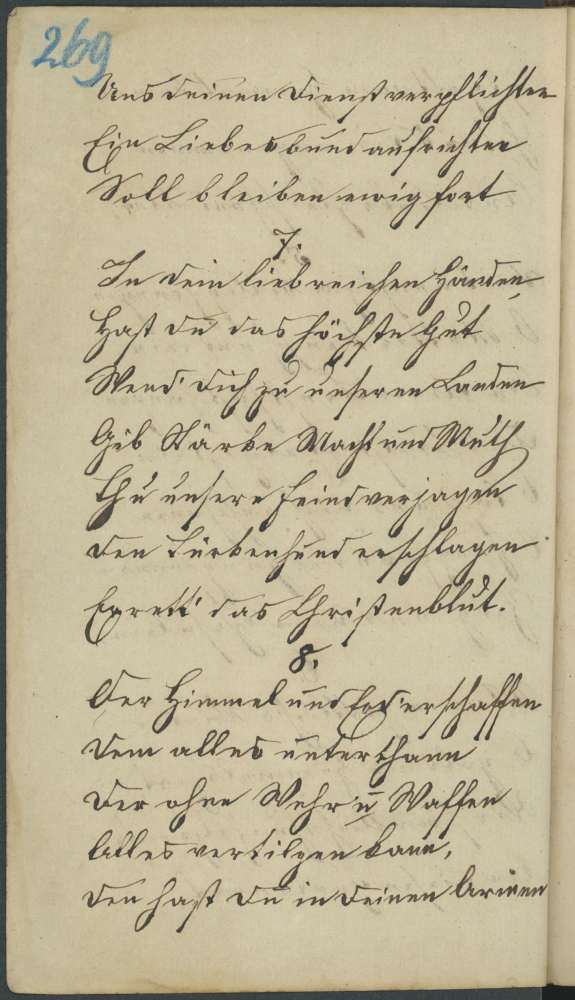 269
Uns deinen Dienst verpflichten
Ein Liebesbund aufrichten
Soll bleiben ewig fort
7.
In dein liebreichen Händen
Hast du das höchste Gut
Wend' dich zu unseren Landen
Gib Stärke Macht und Muth
Thu unsere Feind verjagen
Den Türkenhund erschlagen
Errett' das Christenblut.
8.
Der Himmel und Erd' erschaffen
Dem alles unterthann
Der ohne Wehr u Waffen
Alles vertilgen kann,
Den hast du in deinen Armen